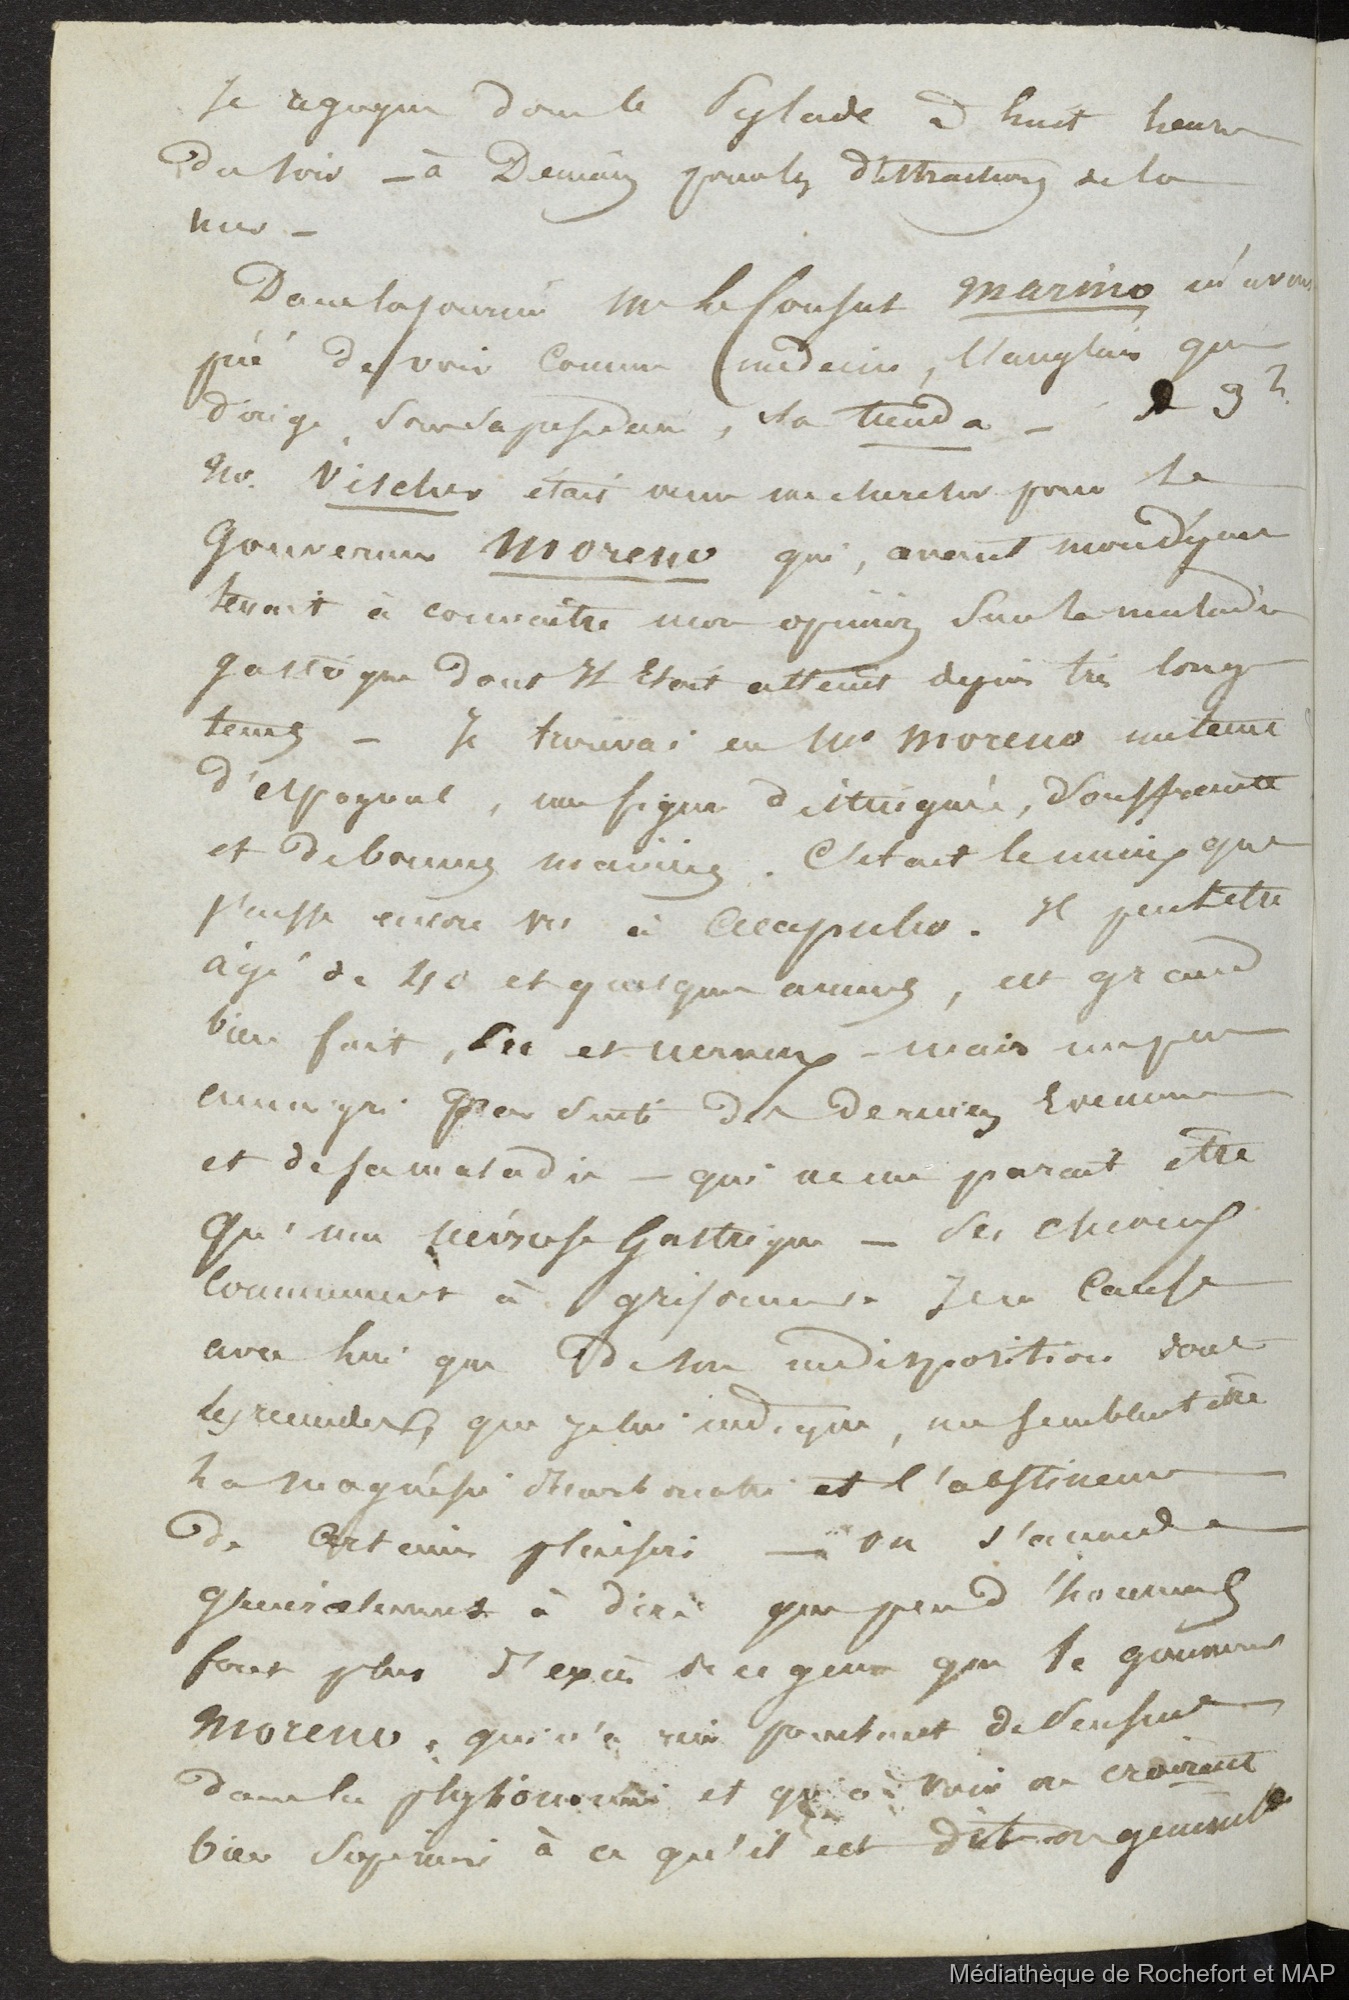 Je regagne donc le Pylade à huit heures
du soir – à Demain pour les distractions de la
mer –
Dans la journée Mr le Consul Marino m'avait
prié de voir comme médecin, l'anglais qui
dirige, sous sa présidence, la tienda – à 9h
Mr. Vischer était venu me chercher pour le
Gouverneur Moreno qui, avant mon départ
tenait à connaitre mon opinion sur la maladie
gastrique dont Il était atteint depuis très long
tems – Je trouvai en Mr Moreno un teint
d'espagnol, une figure distinguée, souffrante
et de bonnes manières. C'était le mieux que
j'eusse encore vu à Acapulco. Il peut être
âgé de 40 et quelques années, est grand
bien fait, sec et nerveux – mais un peu
amaigri par suite des derniers Evenemens
et de sa maladie – qui ne me parait être
qu'une névrose Gastrique – Ses cheveux
commencent à grisonner. Je cause
avec lui de son indisposition dont
les remèdes, que je lui indique, me semblent être
La magnésie et l'abstinence
de Certains plaisirs – on s'accorde
généralement à dire que peu d'hommes
font plus d'excès de ce genre que le gouverneur
Moreno, qui n'a rien pourtant de sensuel
dans la physionomie et qu'à voir on croirait
bien supérieur à ce qu'il est dit-on généralt
Médiathèque de Rochefort et MAP